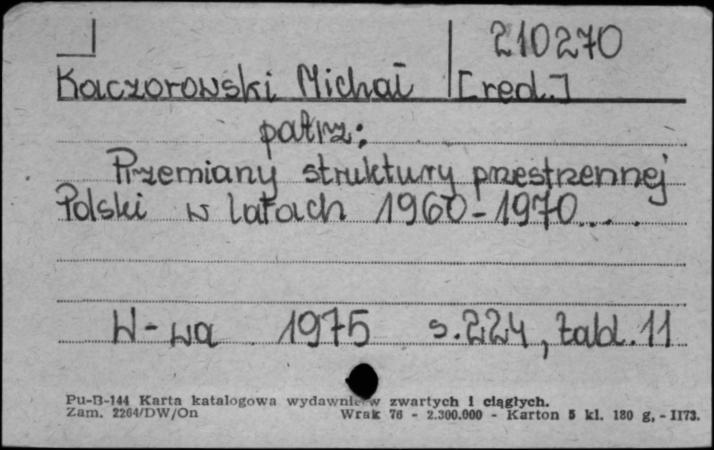 210270
Kaczorowski Michał [red.]
patrz:
Przemiany struktury przestrzennej
Polski w latach 1960-1970....
W-wa 1975 s.224, tabl. 11
Pu-B-144 Karta katalogowa wydawnictw zwartych i ciągłych.
Zam. 2264/DW/On Wrak 76 - 2.300.000 - Karton 5 kl. 180 g, - II73.